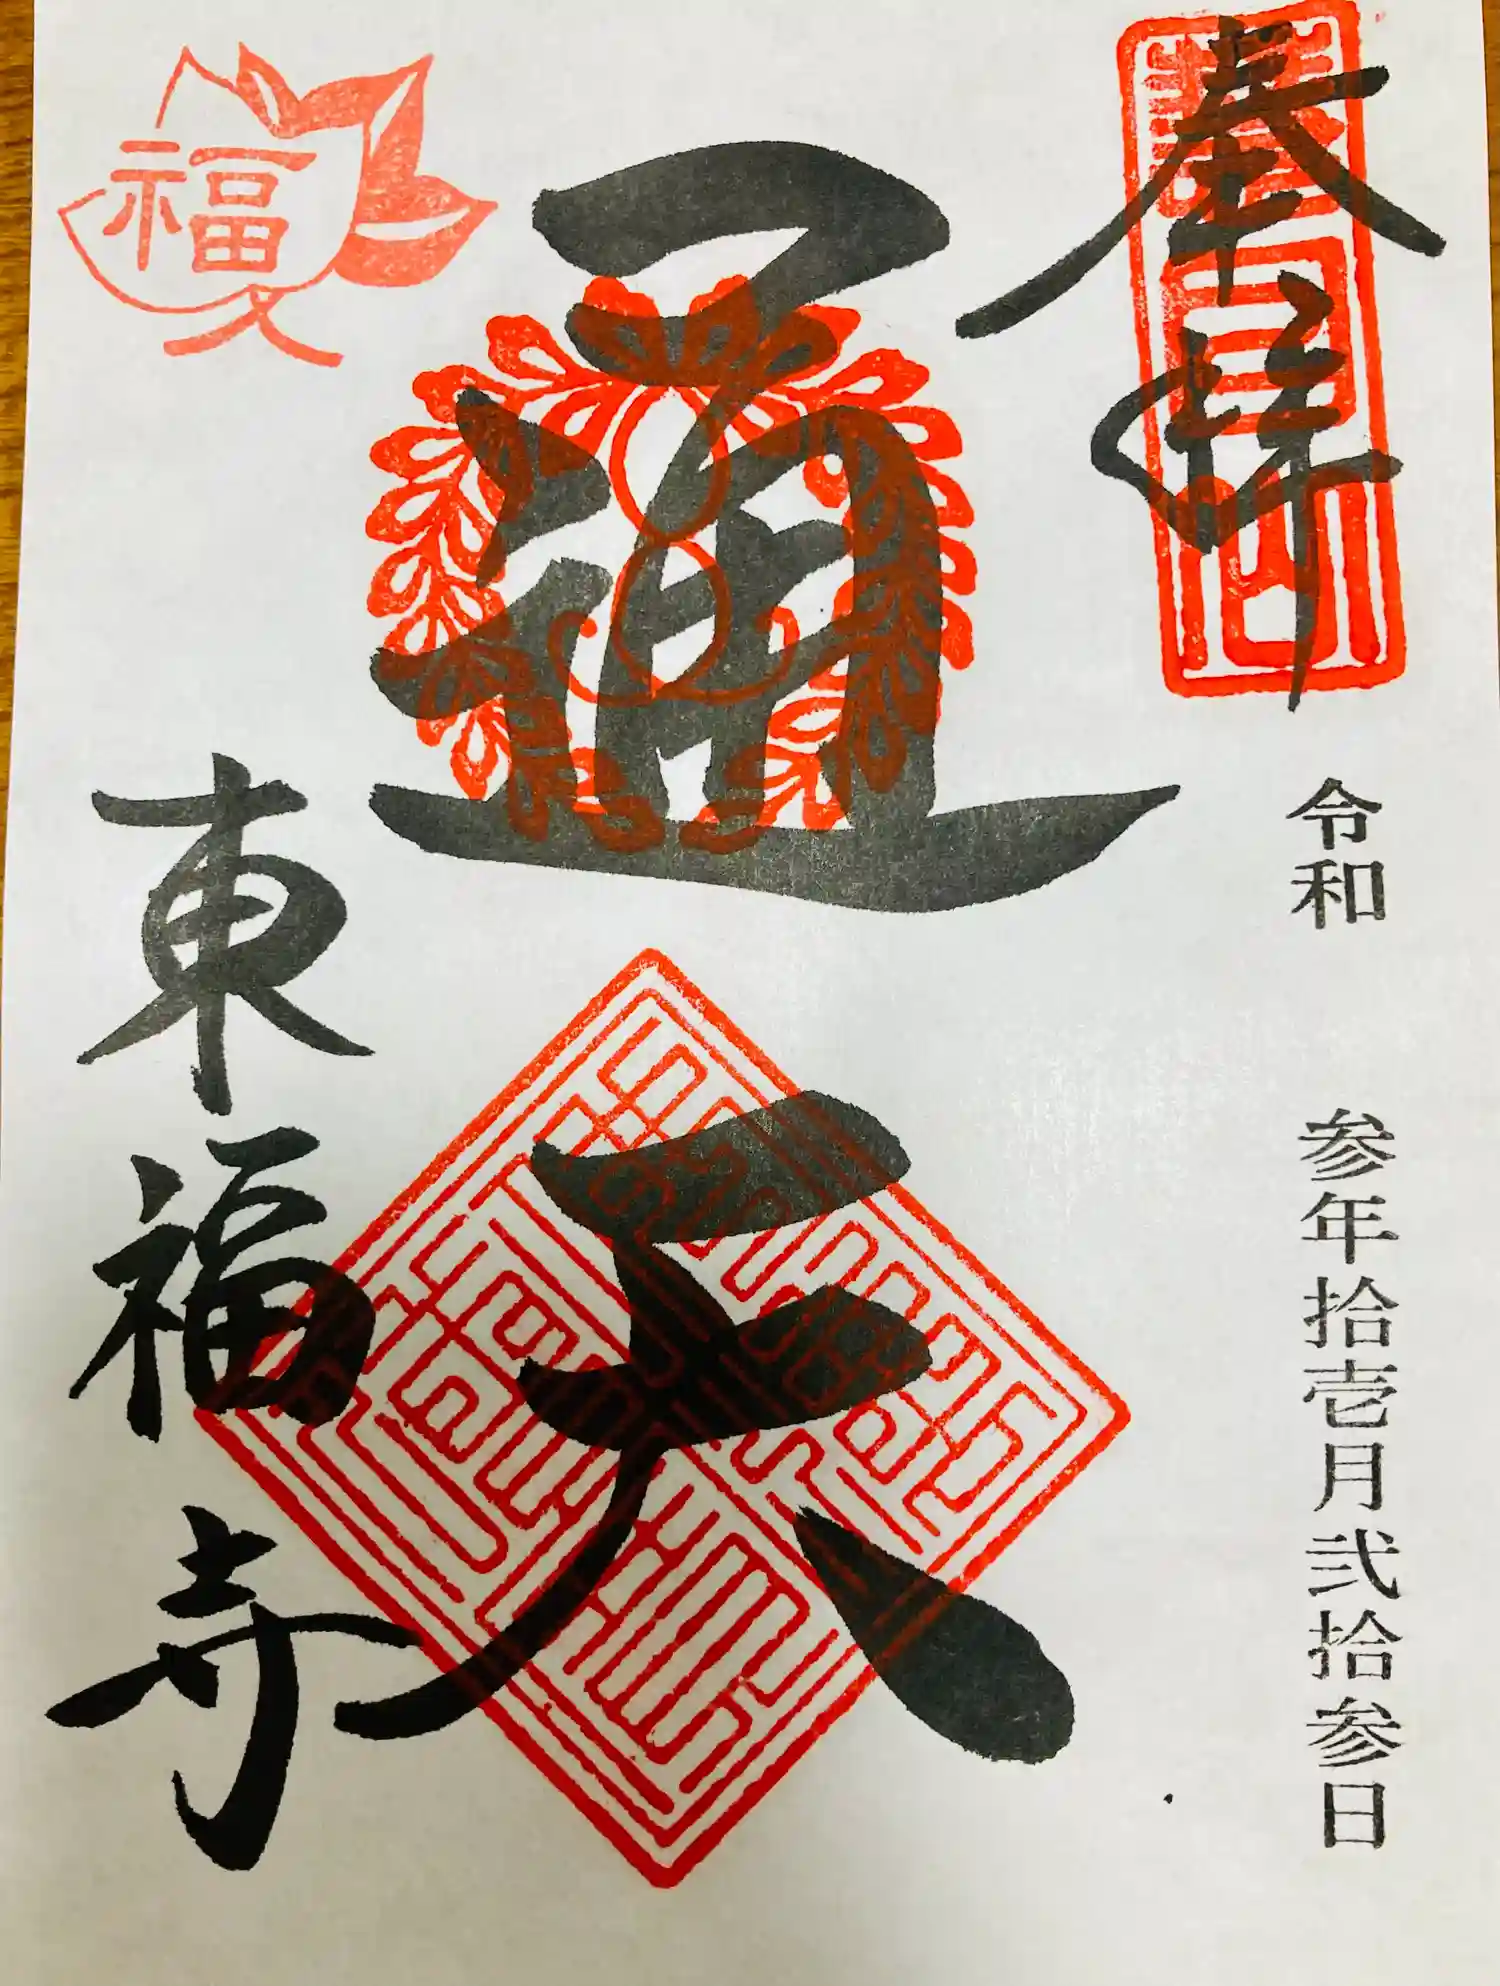 奉拝
令和 参年拾壱月弐拾参日
通天
福
東福寺